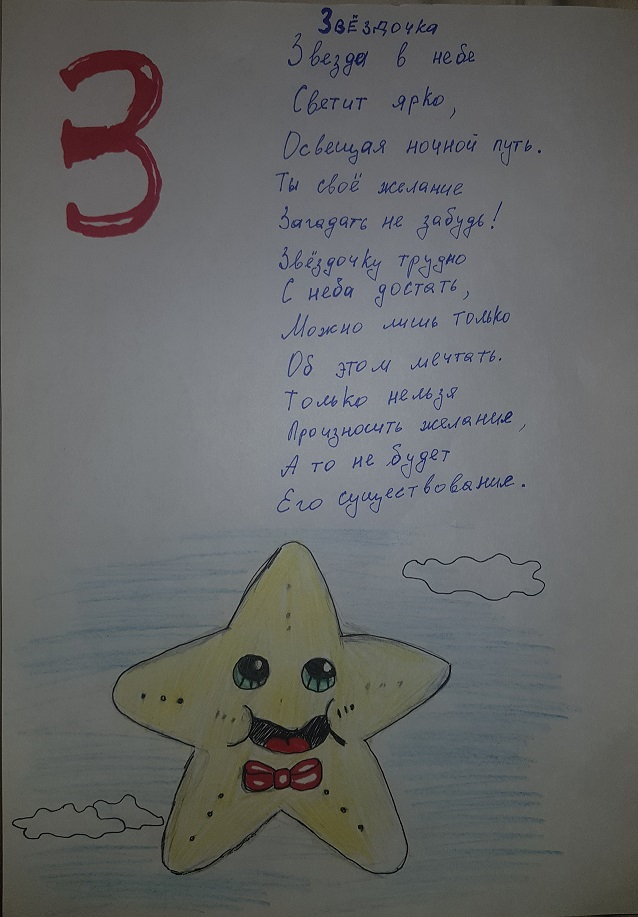 З
Звёздочка
Звезда в небе
Светит ярко,
Освещая ночной путь.
Ты своё желание
Загадать не забудь!
Звёздочку трудно
С неба достать,
Можно лишь только
Об этом мечтать.
Только нельзя
Произносить желание,
А то не будет
Его существование.